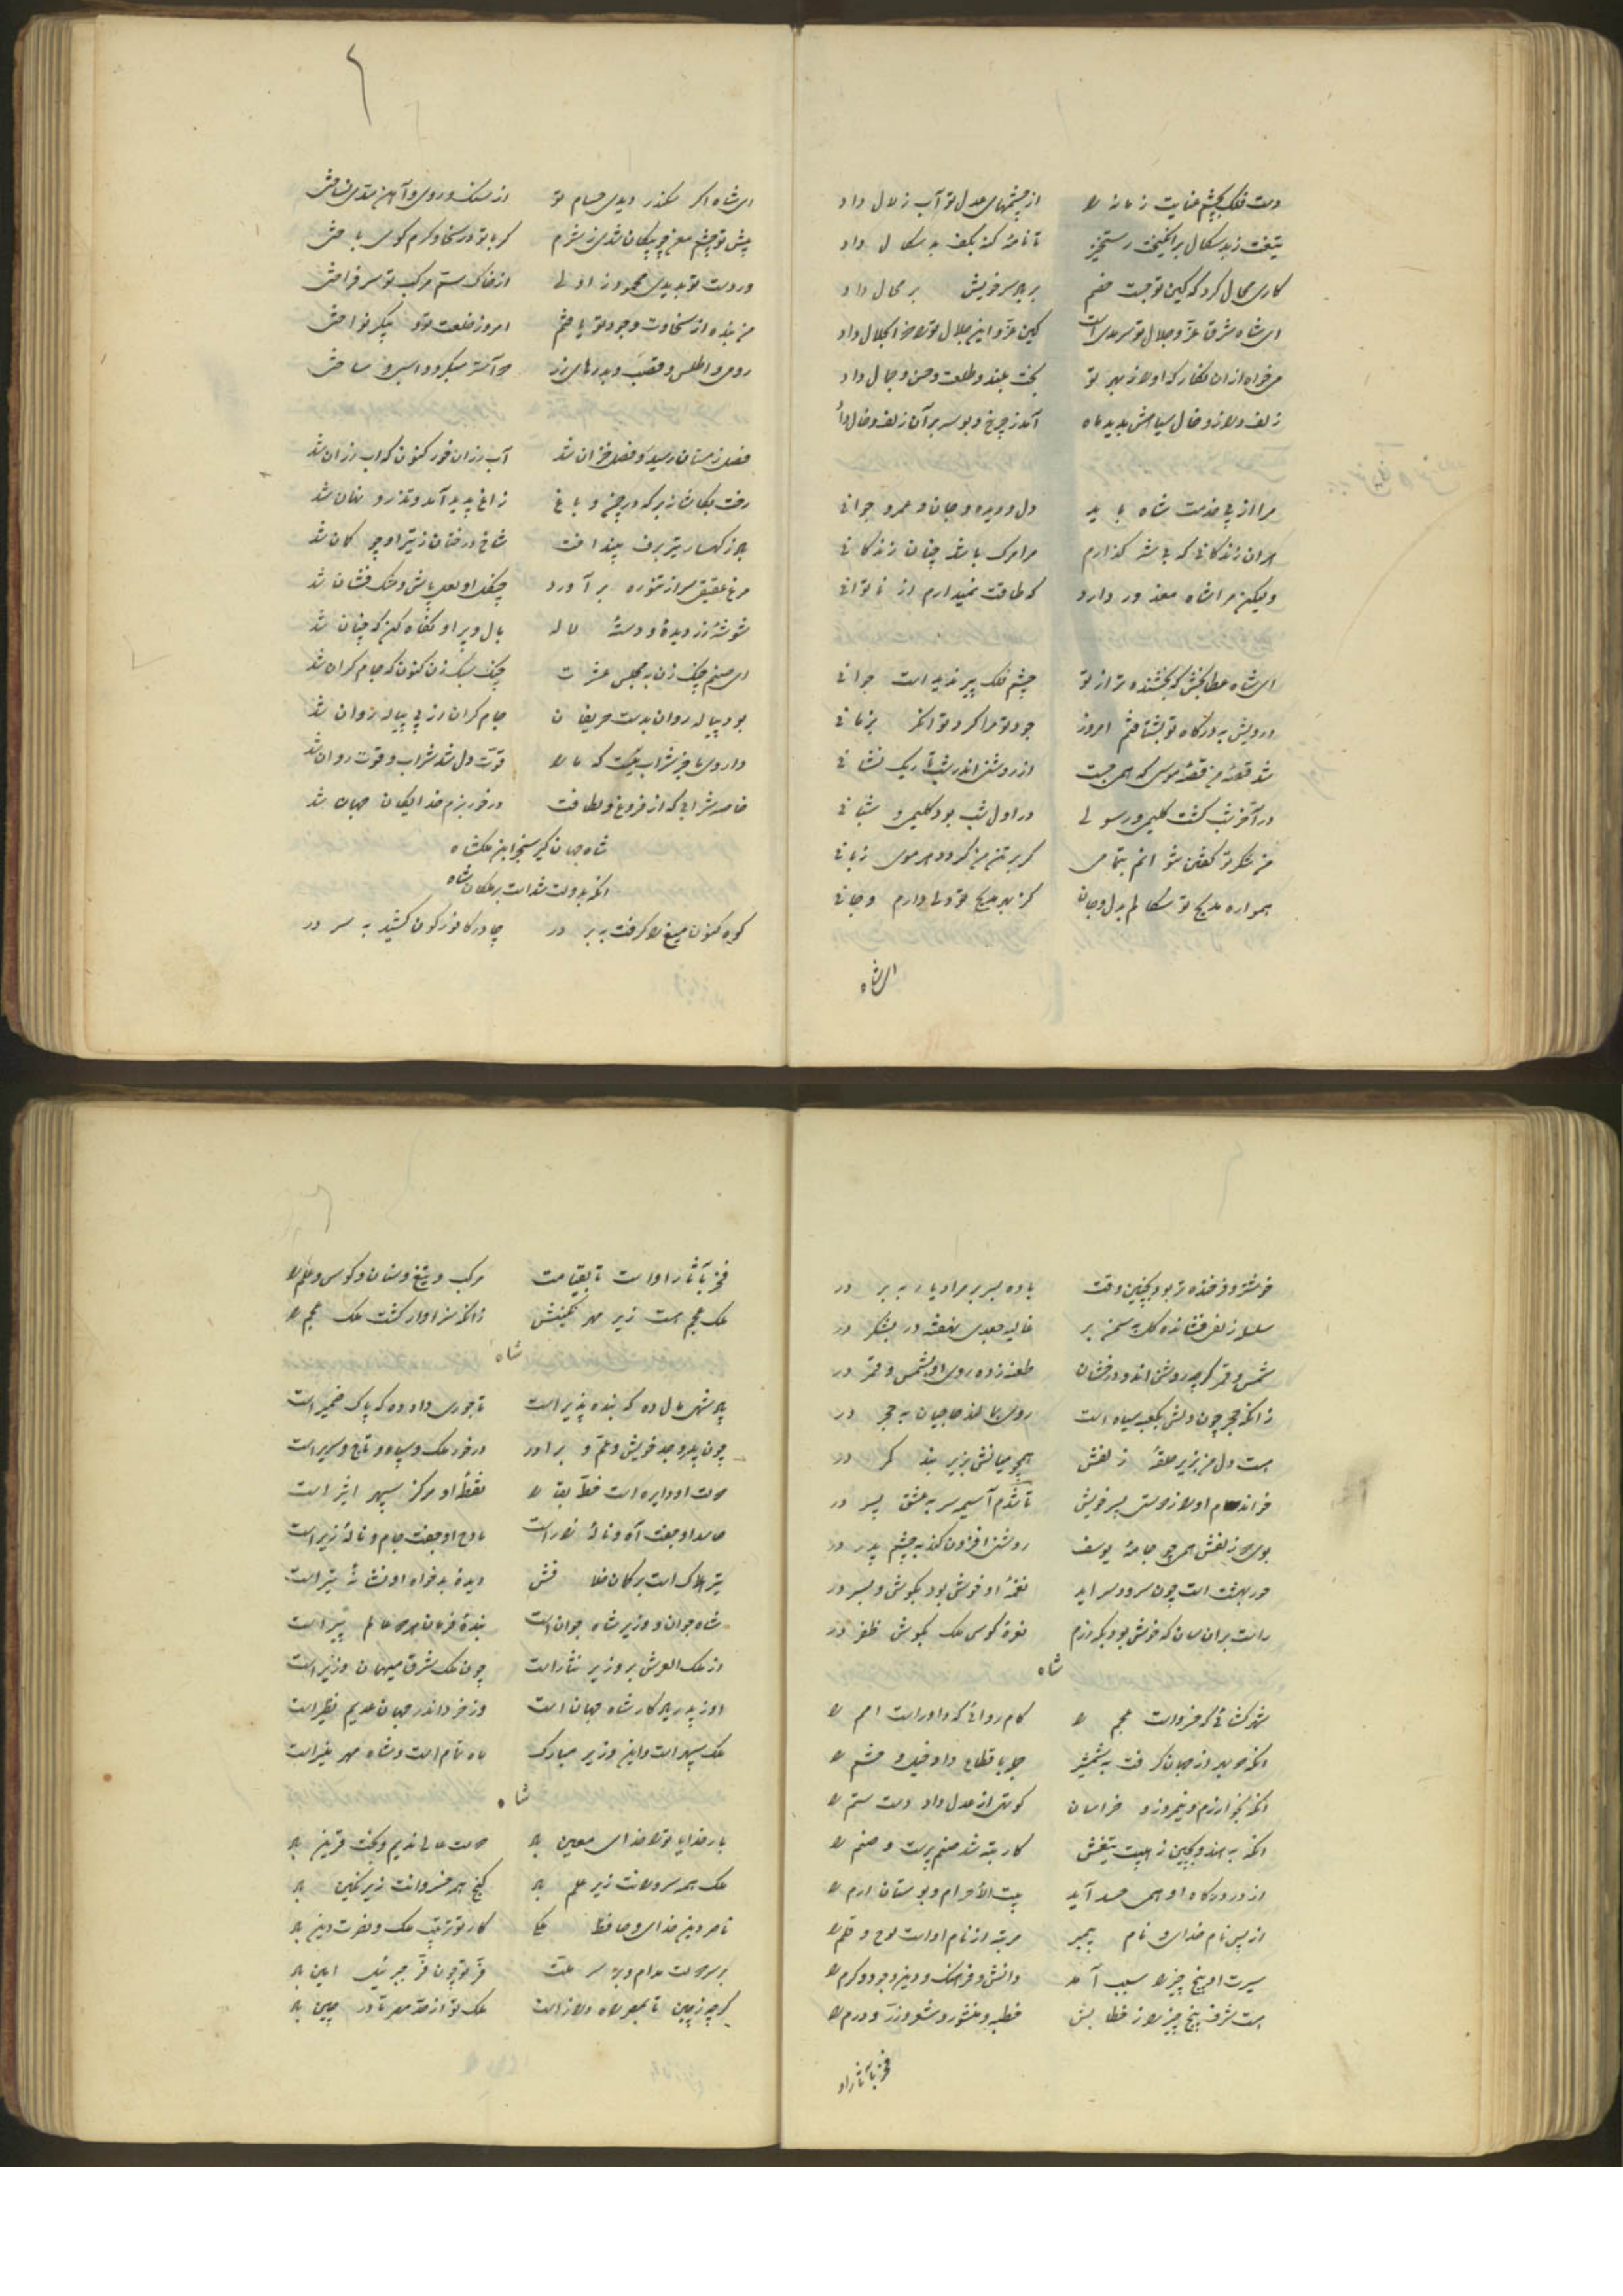 دست فلک بچشم عنایت زمانه را از چشمهای عدل تو آب زلال داد
تیغت ز بدسکال برانگیخت رستخیز تا نامهٔ گنه بکف بدسکال داد
کاری محال کرد که کین تو جست خصم بر باد سر خویش بر محال داد
ای شاه شرق عز و جلال تو سرمدی است کین عز و این جلال ترا ذوالجلال داد
بخت بلند و طلعت و حسن و جمال داد
زلف دراز و خال سیاهش بدید ماه آمد ز چرخ و بوسه بر آن زلف و خال داد
مرا از پی خدمت شاه باید دل و دیده و جان و عمر و جوانی
بر آن زندگانی که بی شه گذارم مرا مرگ باشد چنان زندگانی
ولیکن مرا شاه معذور دارد که طاقت نمیدارم از ناتوانی
ای شاه عطابخش که بخشنده‌تر از تو چشم فلک پیر ندیده است جوانی
درویش بدرگاه تو بشتافتم امروز جود تو مرا کرد توانگر بزمانی
شد قصهٔ من قصهٔ موسی که همی جست از روشنی اندر شب تاریک نشانی
در آخر شب گشت کلیمی و رسولی در اول شب بود کلیمی و شبانی
من شکر تو گفتن نتوانم بتمامی گر بر تن من گردد هر موی زبانی
همواره مدیح تو سکالم بدل و جان کز بهر مدیح تو دلی دارم و جانی
ای شاه
ای شاه اگر سکندر دیدی حسام تو از سنگ و روی و آهن سدی نساختی
پیش تو چشم معن چو پیکان شدی ز شرم گر با تو در سخا و کرم گوی باختی
ور دست تو بدیدی محمود زاولی از خاک سم مرکب تو سر فراختی
من بنده از سخاوت وجود تو یافتم
رومی و اطلس و قصب و بدرهای زر
فصل زمستان رسید و فصل خزان شد آب رزان خور کنون که آب رزان شد
رفت بکاشانه هر که در چمن و باغ زاغ پدید آمد و تذرو نهان شد
باد ز کهسار تیر برف بینداخت شاخ درختان ز تیر او چو کمان شد
مرغ عقیقی سر از تنوره برآورد چنگل او لعل پاش و مشک فشان شد
شوشهٔ زر دیدهٔ و دستهٔ لاله بال و پر او نگاه کن که چنان شد
ای صنم چنگ زن بمجلس عشرت چنگ سبک زن کنون که جام گران شد
بود پیاله روان بدست حریفان جام گران از پی پیاله روان شد
داروی ما جز شراب نیست که ما را قوت دل شد شراب و قوت روان شد
خاصه شرابی که از فروغ و لطافت درخور بزم خدایگان جهان شد
شاه جهانگیر سنجر ابن ملکشاه
آنکه بدولت شدست بر ملکان شاه
کوه کنون میغ را گرفت به بر در چادر کافورگون کشید به سر در
خوشتر و فرخنده‌تر بود بچنین وقت باده بسر بر مرا و یار به بر در
سلسلهٔ زلف فشانده بر گل و سمن بر غالیه جعدی نهفته در بشکر در
شمس و قمر گرچه روشن‌اند و درخشان طعنه زده روی او بشمس و قمر در
زانکه حجر چون دلش بکعبه سیاه است روی بمالند حاجیان به حجر در
هست دل من بزیر حلقهٔ زلفش همچو میانش بزیر بند کمر در
خوانده‌ام او را ز دوستی پسر خویش تا شدم آسیمه سر به عشق پسر در
بوی سر زلفش همی چو جامهٔ یوسف روشنی افزون کند به چشم پدر در
حور بهشت است چون سرود سراید نغمهٔ او خوش بود بگوش و بسر در
راست بران سان که خوش بود بگه رزم نعرهٔ کوس ملک بگوش ظفر در
شاه
شهرگشائی که خسرو است عجم را کام روائی که داور است امم را
آنکه چو بهر از جهان گرفت به شمشیر جمله باقطاع داد خیل و حشم را
آنکه بخوارزم و نیمروز و خراسان کوتهی از عدل داد دست ستم را
آنکه به هند و بچین ز هیبت تیغش کار تبه شد صنم پرست و صنم را
از در درگاه او همی حسد آید بیت الحرام و بوستان ارم را
از پس نام خدای و نام پیمبر مرتبه از نام اوست لوح و قلم را
سیرت او پنج چیز را سبب آمد دانش و فرهنگ و دین و جود و کرم را
هست شرف پنج چیز را ز خطابش خطبه و منشور و شعر و زر و درم را
فخر بآثار او
فخر بآثار اوست تا بقیامت مرکب و تیغ و سنان و کوس و علم را
ملک عجم هست زیر مهر نگینش زانکه سزاوار گشت ملک عجم را
شاه
پادشهی مال ده که بنده پذیر است تاجوری داد ده که پاک ضمیر است
چون پدر و جد خویش و عم و برادر درخور ملک و سپاه و تاج و سریر است
دولت او دایره است خط بقا را نقطهٔ او مرکز سپهر اثیر است
حاسد او جفت آه و نالهٔ زار است مادح او جفت جام و نالهٔ زیر است
تیر هلاک است بر کمان فلک دیدهٔ بدخواه او نشانهٔ تیر است
شاه جوان و وزیر شاه جوان است بندهٔ فرمان هر دو عالم پیر است
از ملک العرش بر وزیر نثار است چون ملک شرق میهمان وزیر است
او ز پدر یادگار شاه جهان است وز خرد اندر جهان عدیم نظیر است
ملک سپهر است و این وزیر مبارک ماه تمام است و شاه مهر منیر است
شاه
بار خدایا ترا خدای معین باد دولت عالی ندیم و بخت قرین باد
ملک همه سروران زیر علم باد گنج همه خسروانت زیر نگین باد
ناصر دین خدای و حافظ ملکی کار تو ترتیب ملک و نصرت دین باد
بر سر دولت مدام و بر سر ملت فر تو چون فر جبرئیل امین باد
گرچه ز چین تا بمصر راه دراز است ملک تو از حد مصر تا در چین باد